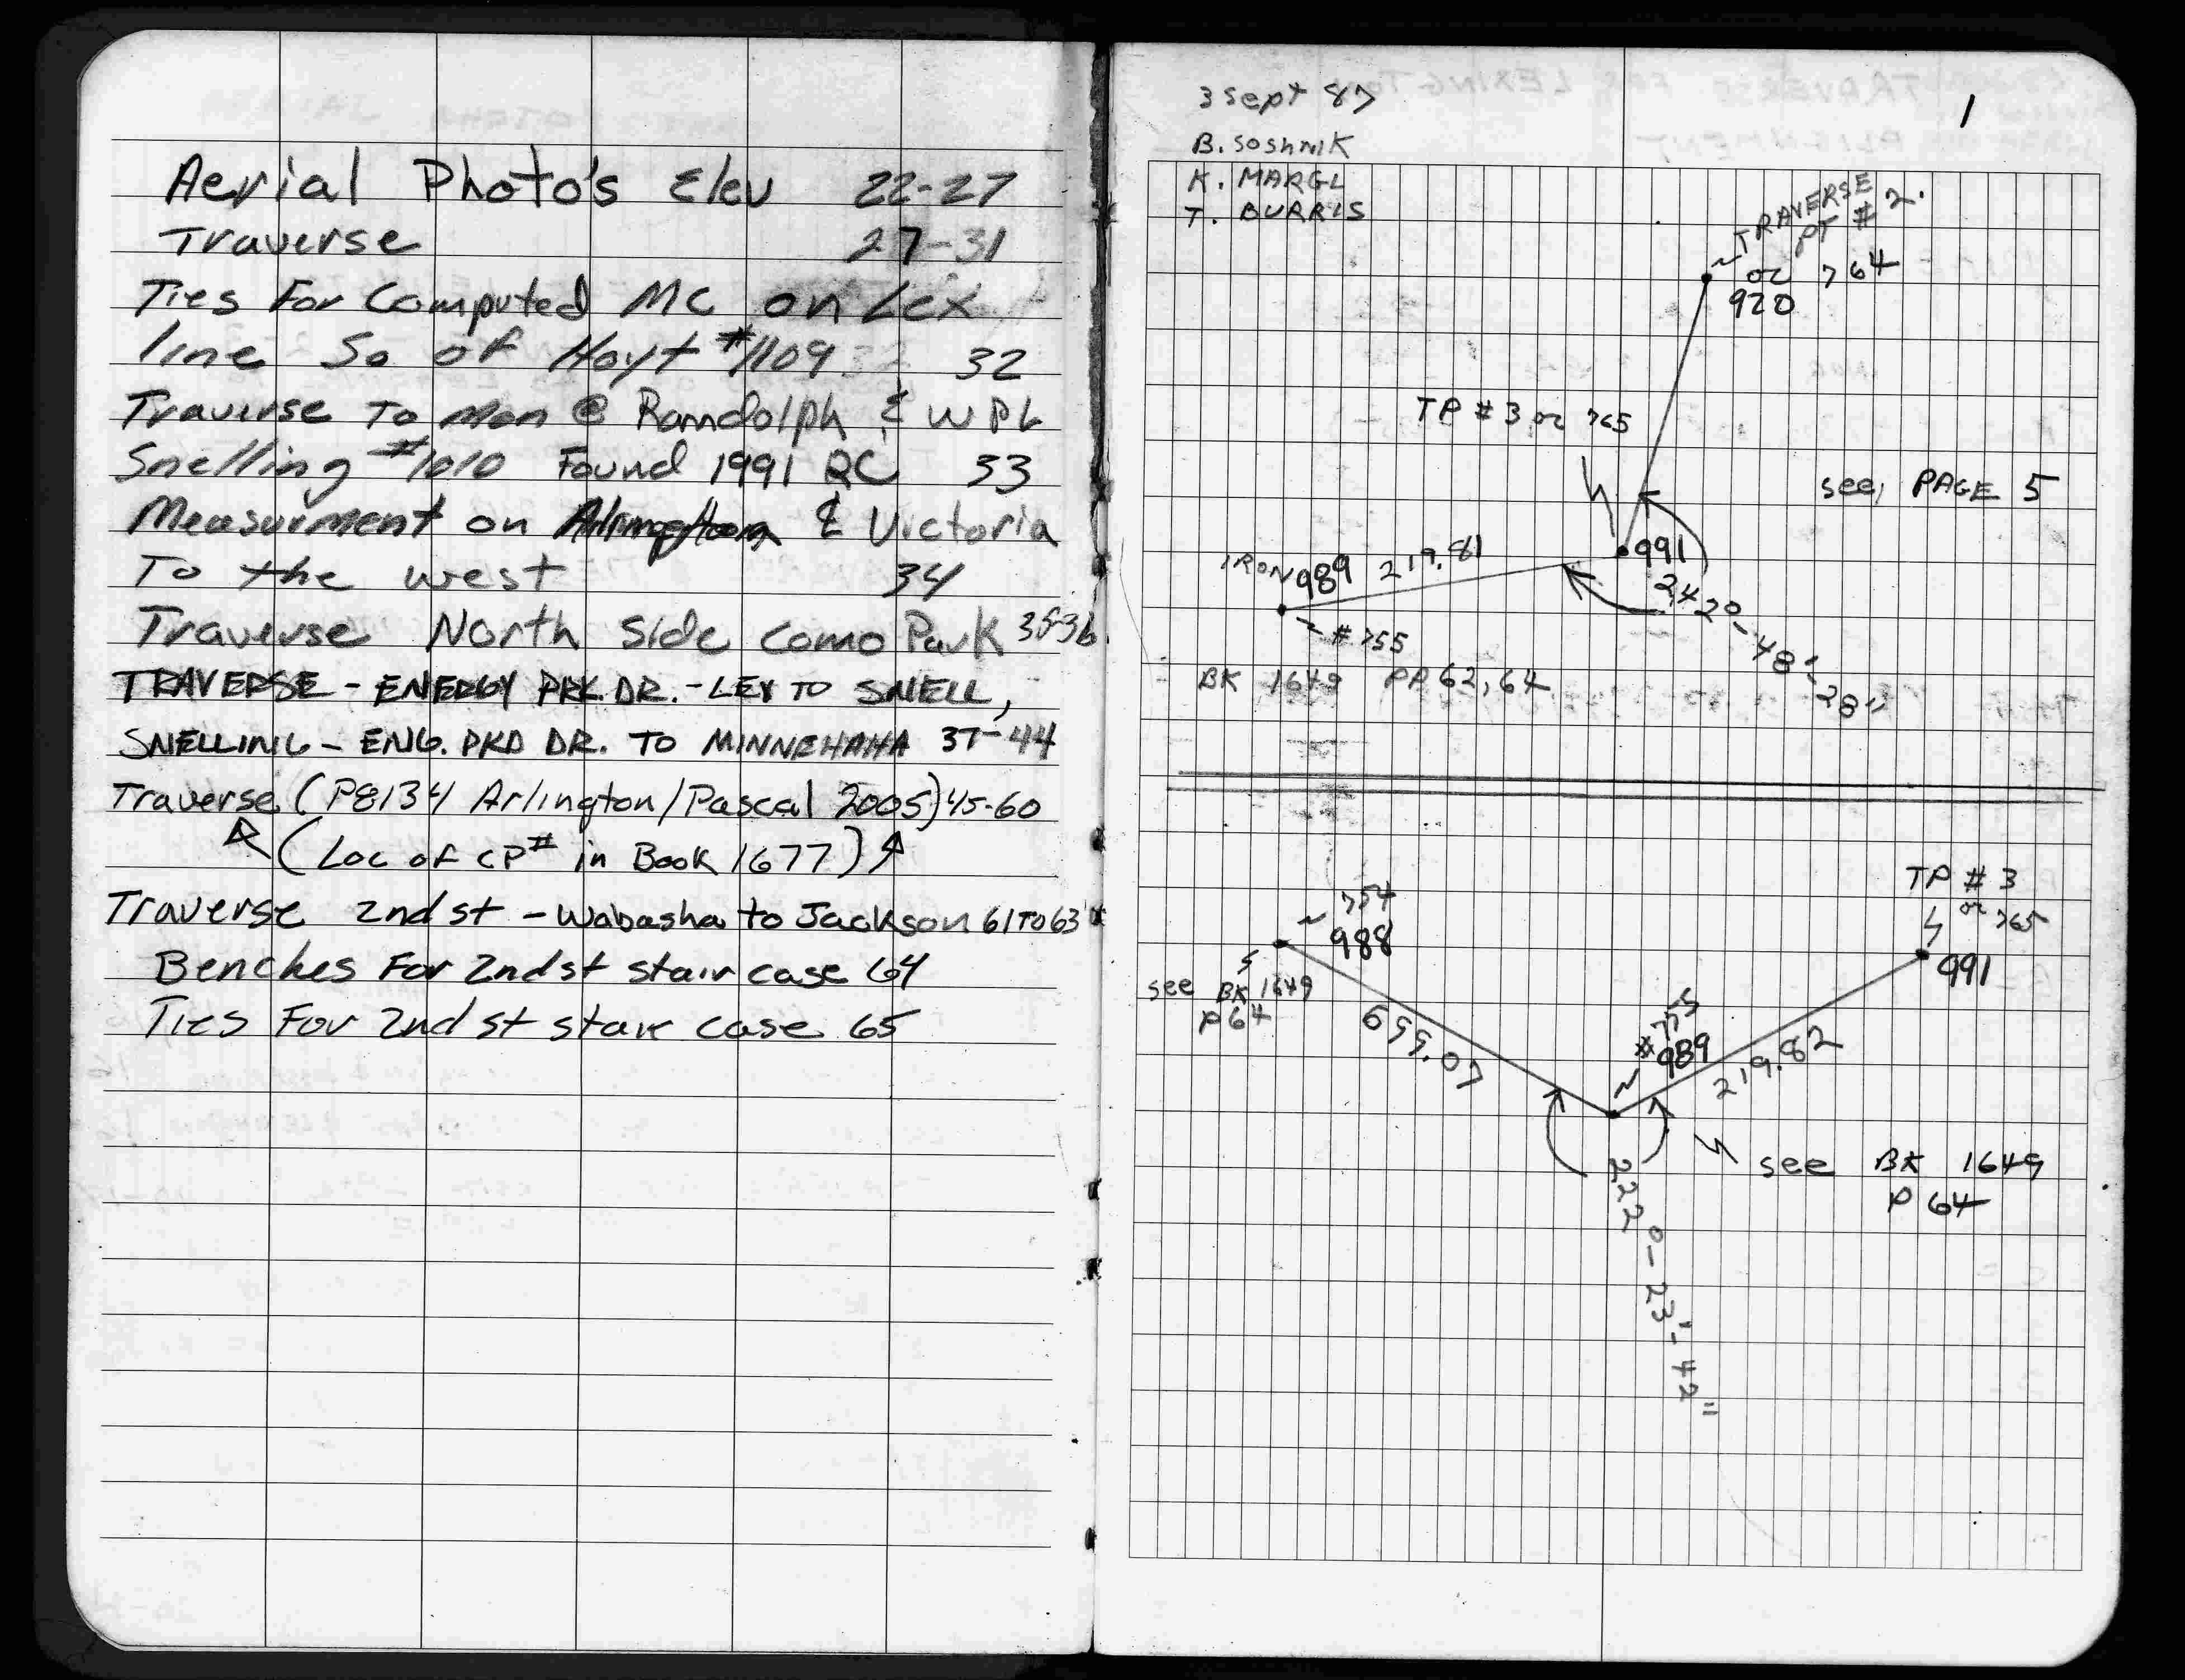 Aerial Photo's Elev 22-27
Traverse 27-31
Ties For Computed MC on Lex
line So of Hoyt #1109 32
Traverse To Mon @ Randolph & W PL
Snelling #1010 Found 1991 RC 33
Measurment on Arlington & Victoria
To the west 34
Traverse North Side Como Park 35-36
TRAVERSE - ENERGY PRK DR. - LEX TO SNELL,
SNELLING - ENG. PKD DR. TO MINNEHAHA 37-44
Traverse (P8134 Arlington/Pascal 2005) 45-60
(Loc of CP# in Book 1677)
Traverse 2nd st - Wabasha to Jackson 61 TO 63
Benches For 2nd st stair case 64
Ties For 2nd st stair case 65
3 Sept 87
1
B. SOSHNIK
K. MARGL
T. BURRIS
TRAVERSE
PT # 2.
or 764
920
TP # 3 or 765
see, PAGE 5
991
IRON 989 219.81
242°-48'-28"
#755
BK 1649 PP 62,64
TP # 3
or 765
991
754
988
see BK 1649
P 64
699.07
#775
989
219.82
see BK 1649
P 64
222°-23'-42"